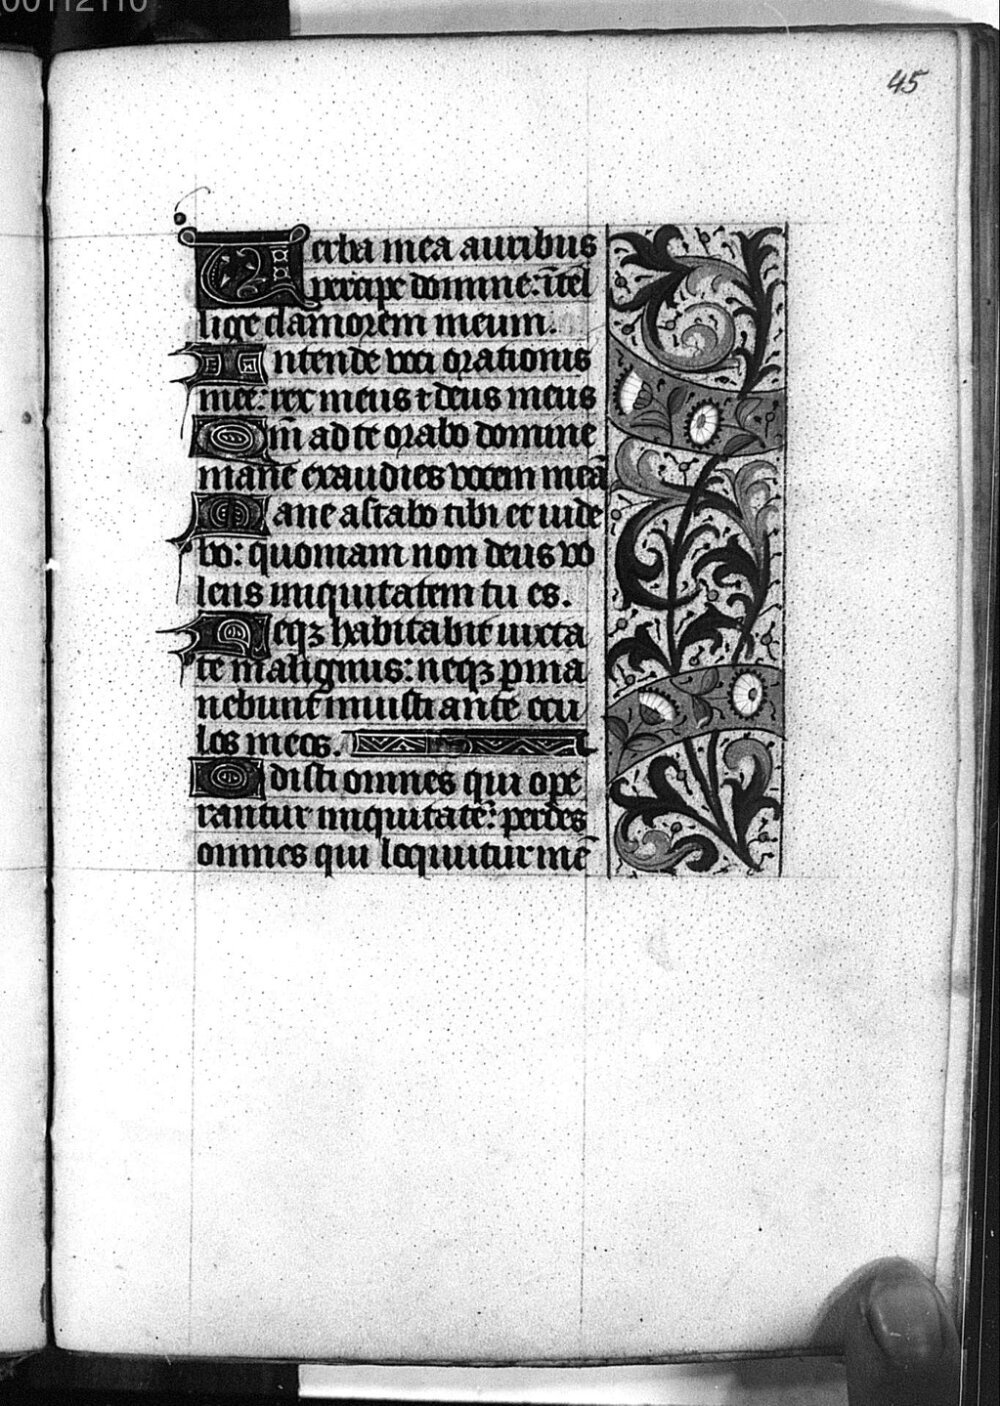 00112110
45
Uerba mea auribus
percipe domine: ītel
lige clamorem meum.
Intende voci orationis
mee: rex meus ⁊ deus meus
Qm̄ ad te orabo domine
mane exaudies vocem meā
Mane astabo tibi et uide
bo: quoniam non deus vo
lens iniquitatem tu es.
Neqꝫ habitabit iuxta
te malignus: neqꝫ ꝑma
nebunt iniusti ante ocu
los meos.
Odisti omnes qui ope
rantur iniquitatē: perdes
omnes qui loquuitur mē